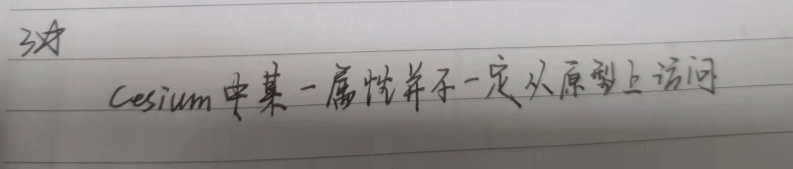 3对
Cesium中某一属性并不一定从原型上访问